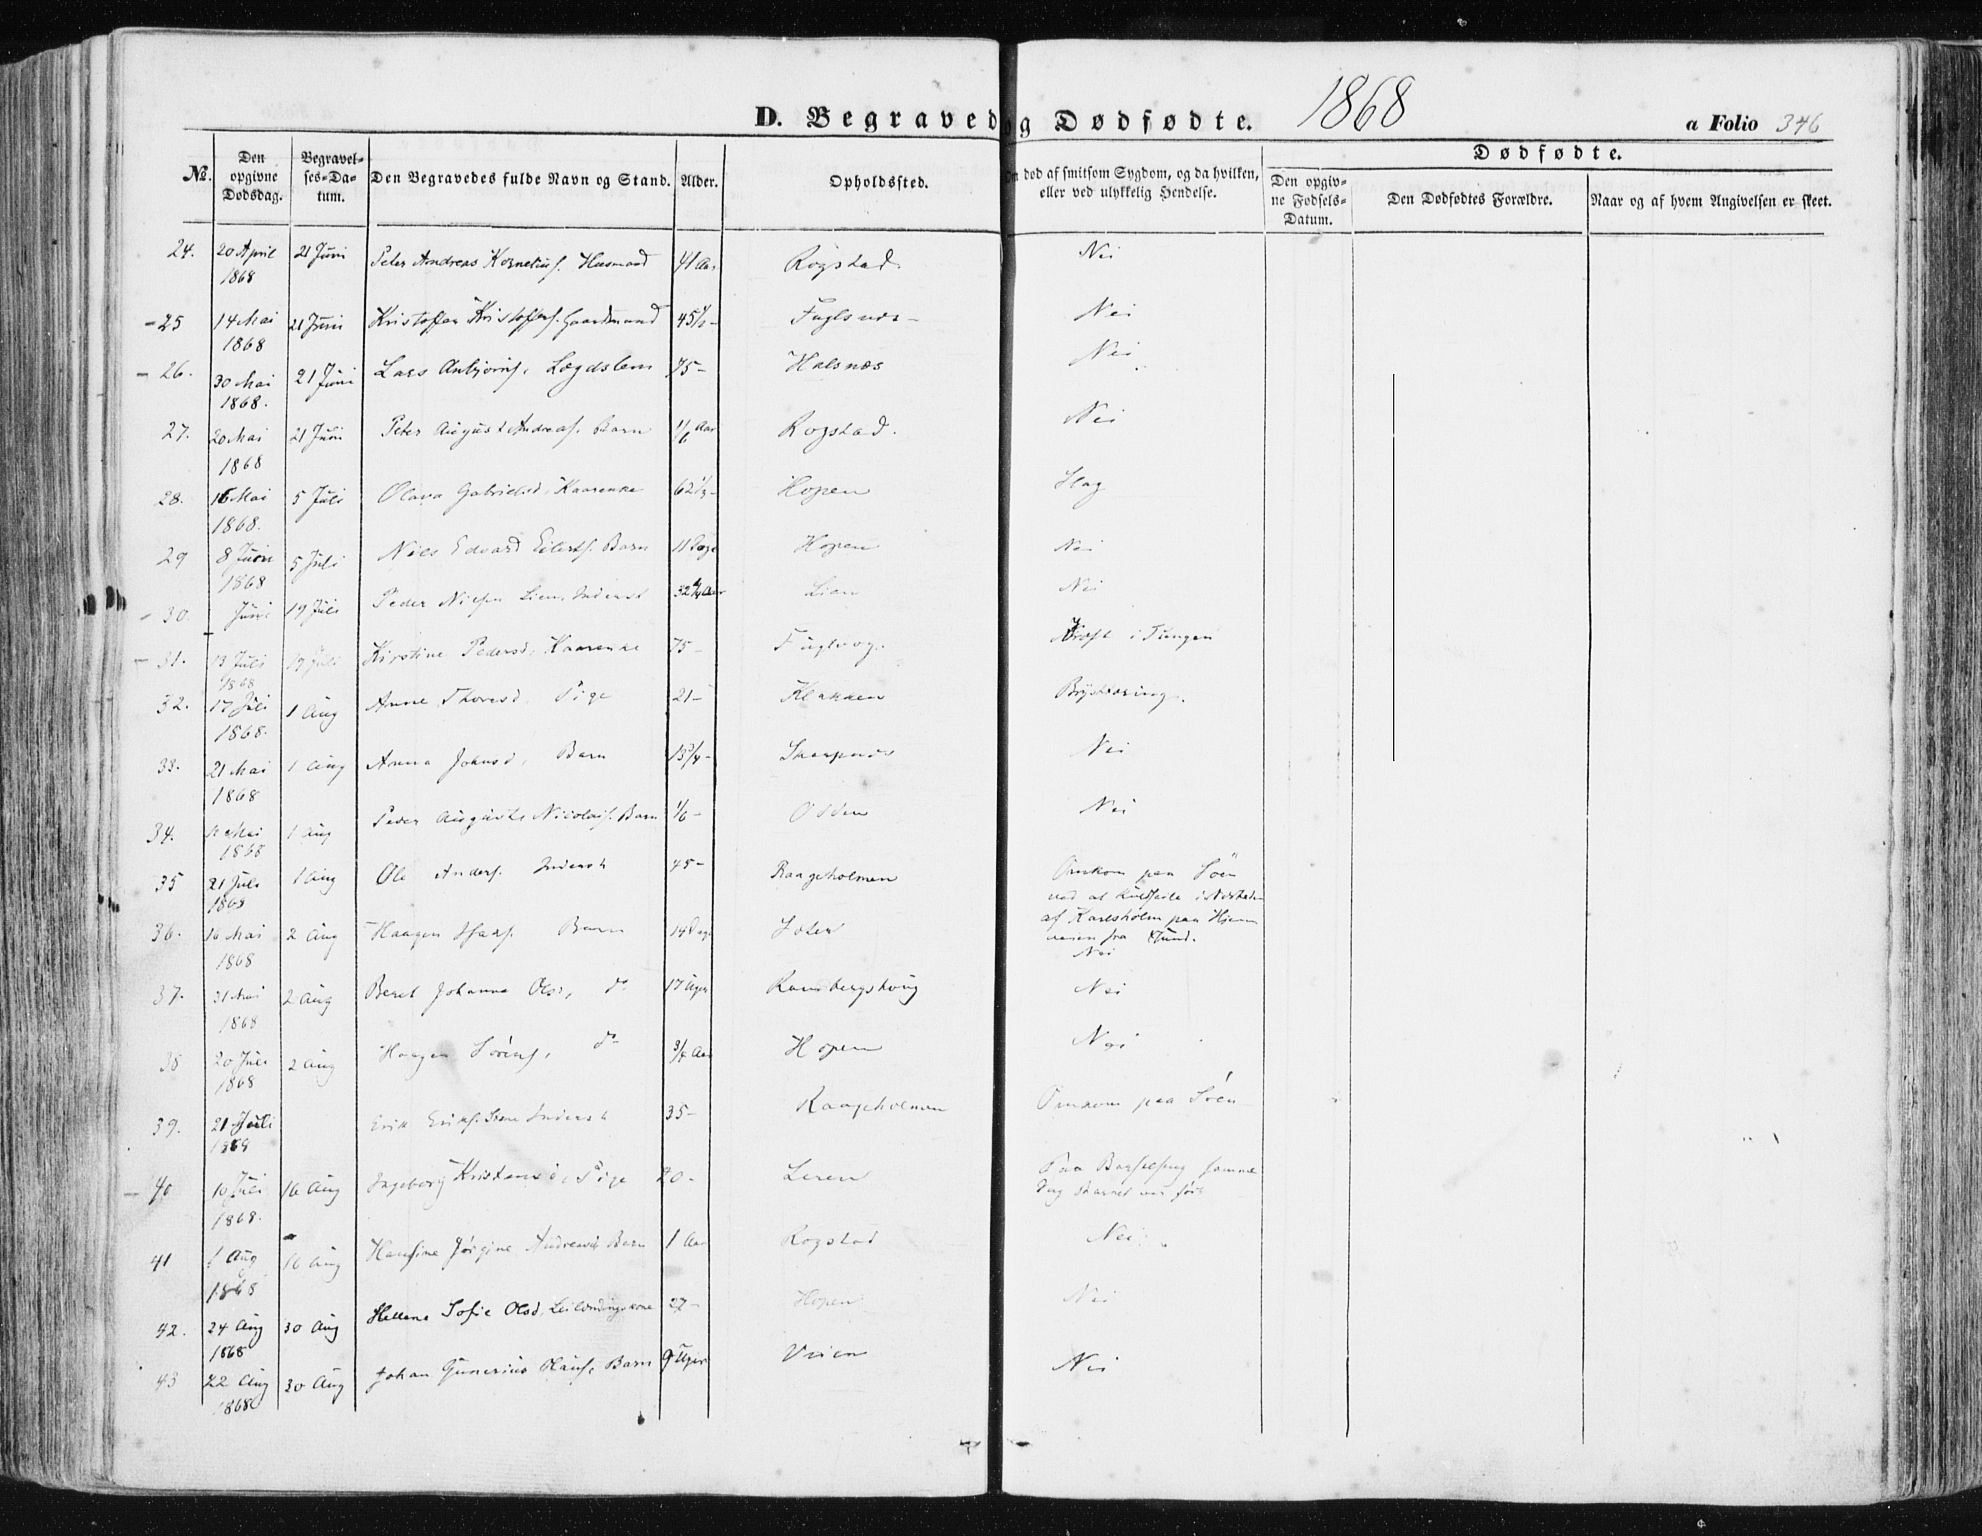 D. Begravede og Dødfødte. 1868 a Folio 346
№. Den opgivne Dødsdag. Begravelses-Datum. Den Begravedes fulde Navn og Stand. Alder. Opholdssted. Om død af smitsom Sygdom, og da hvilken, eller ved ulykkelig Hendelse. Dødfødte.
Den opgivne Fødsels-Datum. Den Dødfødtes Forældre. Naar og af hvem Angivelsen er skeet.
24. 20 April 1868 21 Juni Peter Andreas Kornelius. Husmand 41 Aar Rogstad. Nei
25 14 Mai 1868 21 Juni Kristoffer Kristoffers. Gaardmand 45½ – Fuglsnes – Nei
26. 30 Mai 1868. 21 Juni Lars Anbjørns. Lægdslem 75 – Halsnæs Nei
27. 20 Mai 1868 21 Juni Peter August Andreas. Barn 1/6 Aar Rogstad. Nei
28. 16 Mai 1868. 5 Juli Olava Gabrielsd. Kaarenke 62½ – Hopen Slag
29 8 Juni 1868 5 Juli Nils Edvard Eilerts. Barn 11 Dage Hopen Nei
30. Juni 19 Juli Peder Nielsen Lien Inderst 32 Aar Lien Nei
31. 13 Juli 1868 19 Juli Kirstine Pedersd. Kaarenke 75 – Fuglvog. Kræft i Tungen
32. 17 Juli 1868. 1 Aug Anne Thoresd. Pige 21 – Klakken Brystsaaring.
33. 21 Mai 1868 1 Aug Anna Johnsd. Barn 13/4 – Skarpnes Nei
34. Mai 1868 1 Aug Peder August Nicolais. Barn 1/6 – Odden Nei
35 21 Juli 1868 1 Aug Ole Anders. Inderst 45 – Raageholmen Omkom paa Söen
ved at kuldseile i Nærheden
af Karlsholm paa Hjem
veien fra Sund.
36. 16 Mai 1868 2 Aug Haagen Isaks. Barn 14 Dage Nei
37. 31 Mai 1868 2 Aug Beret Johanna Olsd. do 17 Uger Ramsbergshoug Nei
38 20 Juli 1868 2 Aug Haagen Sörens. do 3/4 Aar Hopen Nei
39. 21 Juli 1868 Erik Eriks. Inderst 35 – Raageholmen Omkom paa Söen
40 10 Juli 1868. 16 Aug Ingeborg Kristensd. Pige 20 – Leren Paa Barselseng samme
Dag Barnet var født
41 1 Aug 1868 16 Aug Hansine Jørgine Andreasd. Barn 1 Aar Rogstad Nei
42. 24 Aug 1868 30 Aug Hellena Sofie Olsd. Leilendingskone 27 – Hopen Nei
43 22 Aug 1868 30 Aug Johan Gunerius Olaus. Barn 9 Uger Veien Nei